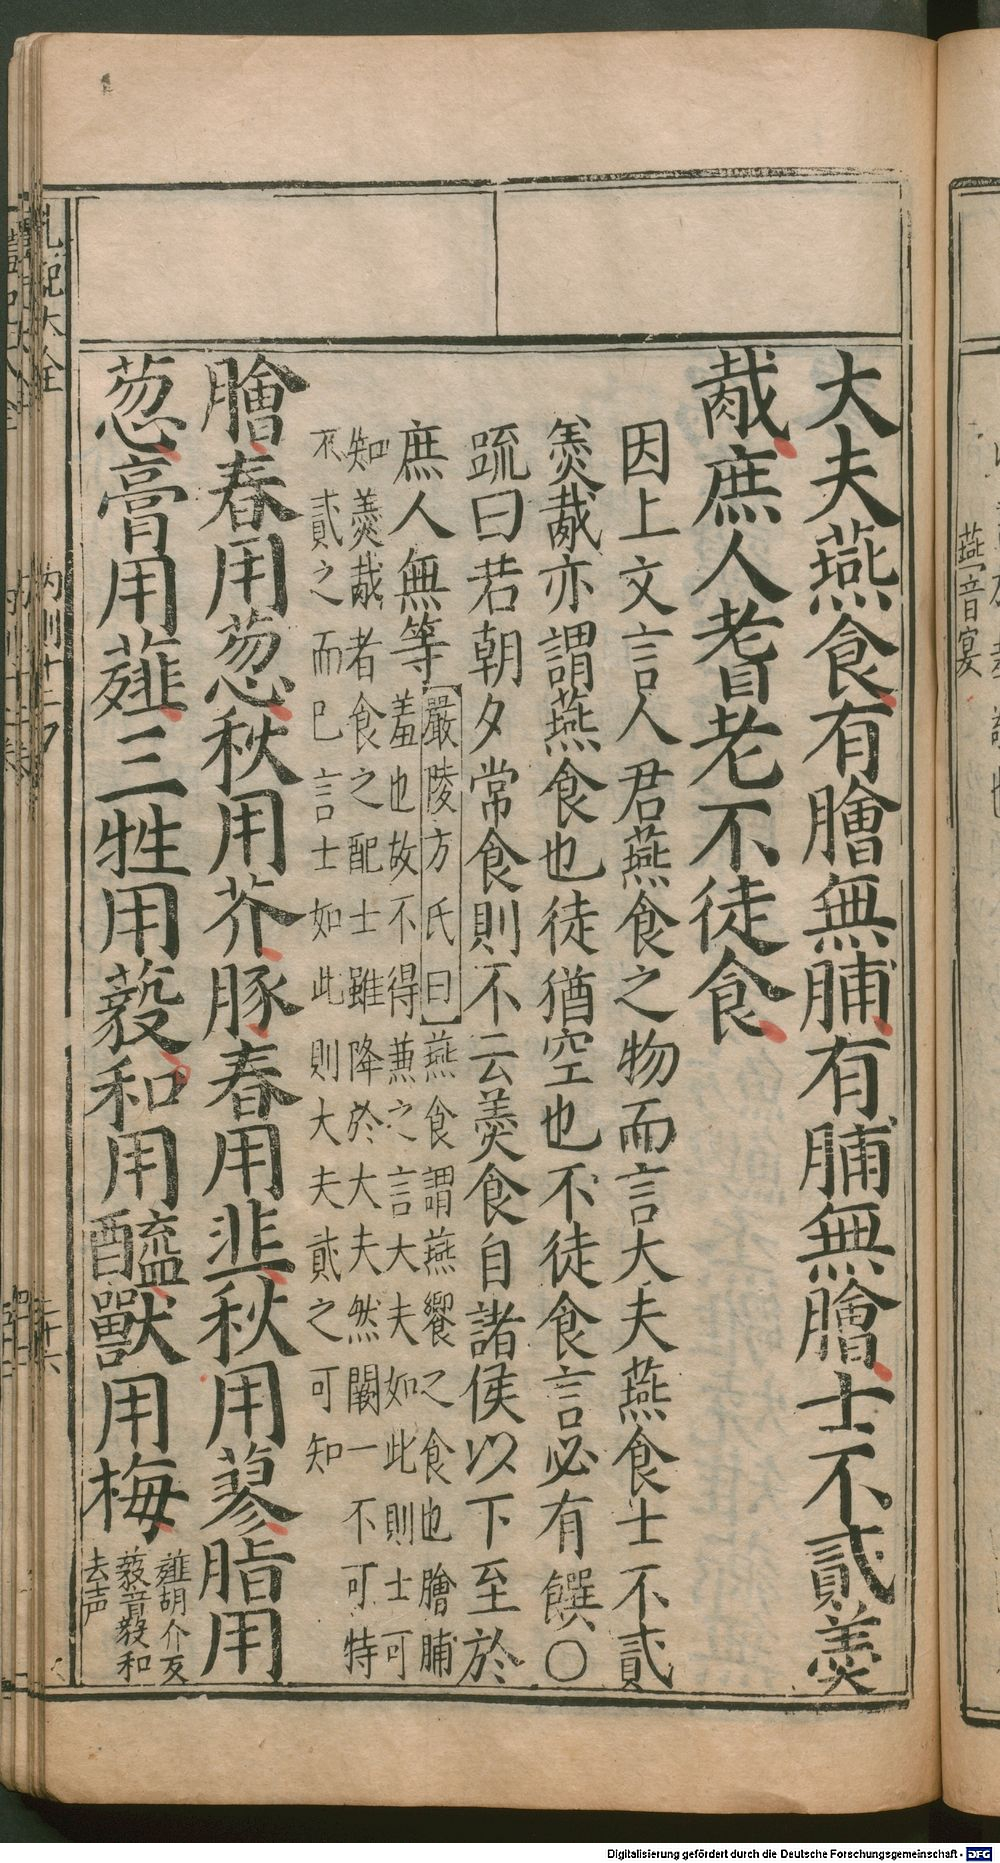 大夫燕食有膾無脯有脯無膾士不貳羹
胾庶人耆老不徒食
因上文言人君燕食之物而言大夫燕食士不貳
羹胾亦謂燕食也徒猶空也不徒食言必有饌○
疏曰若朝夕常食則不云羹食自諸侯以下至於
庶人無等
嚴陵方氏曰燕食謂燕饗之食也膾脯
羞也故不得兼之言大夫如此則士可
知羹胾者食之配士雖降於大夫然闕一不可特
不貳之而已言士如此則大夫貳之可知
膾春用葱秋用芥豚春用韭秋用蓼脂用
葱膏用薤三牲用藙和用醯獸用梅
薤胡介反
藙音毅和
去声
礼記大全
内則十二夕
三十六
燕音宴
Digitalisierung gefördert durch die Deutsche Forschungsgemeinschaft - DFG